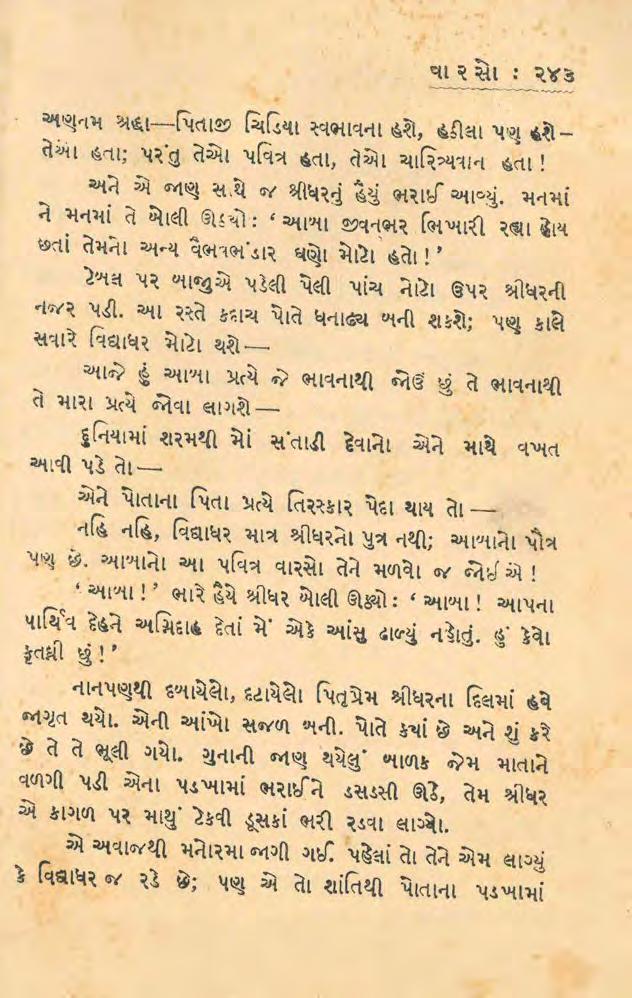 વા ર સો : ૨૪૩
અણનમ શ્રદ્ધા—પિતાજી ચિડિયા સ્વભાવના હશે, હઠીલા પણ હશે—
તેઓ હતા; પરંતુ તેઓ પવિત્ર હતા, તેઓ ચારિત્ર્યવાન હતા !
અને એ જાણ સાથે જ શ્રીધરનું હૈયું ભરાઈ આવ્યું. મનમાં
ને મનમાં તે બોલી ઊઠ્યો : ‘ આબા જીવનભર ભિખારી રહ્યા હોય
છતાં તેમનો અન્ય વૈભવભંડાર ઘણો મોટો હતો ! ’
ટેબલ પર બાજુએ પડેલી પેલી પાંચ નોટો ઉપર શ્રીધરની
નજર પડી. આ રસ્તે કદાચ પોતે ધનાઢ્ય બની શકશે; પણ કાલે
સવારે વિદ્યાધર મોટો થશે—
આજે હું આબા પ્રત્યે જે ભાવનાથી જોઉં છું તે ભાવનાથી
તે મારા પ્રત્યે જોવા લાગશે—
દુનિયામાં શરમથી મોં સંતાડી દેવાનો એને માથે વખત
આવી પડે તો—
એને પોતાના પિતા પ્રત્યે તિરસ્કાર પેદા થાય તો—
નહિ નહિ, વિદ્યાધર માત્ર શ્રીધરનો પુત્ર નથી; આબાનો પૌત્ર
પણ છે. આબાનો આ પવિત્ર વારસો તેને મળવો જ જોઈએ !
‘ આબા ! ’ ભારે હૈયે શ્રીધર બોલી ઊઠ્યો : ‘ આબા ! આપના
પાર્થિવ દેહને અગ્નિદાહ દેતાં મેં એકે આંસુ ઢાળ્યું નહોતું. હું કેવો
કૃતઘ્ની છું ! ’
નાનપણથી દબાયેલો, દટાયેલો પિતૃપ્રેમ શ્રીધરના દિલમાં હવે
જાગૃત થયો. એની આંખો સજળ બની. પોતે ક્યાં છે અને શું કરે
છે તે તે ભૂલી ગયો. ગુનાની જાણ થયેલું બાળક જેમ માતાને
વળગી પડી એના પડખામાં ભરાઈને ડસડસી ઊઠે, તેમ શ્રીધર
એ કાગળ પર માથું ટેકવી ડૂસકાં ભરી રડવા લાગ્યો.
એ અવાજથી મનોરમા જાગી ગઈ. પહેલાં તો તેને એમ લાગ્યું
કે વિદ્યાધર જ રડે છે; પણ એ તો શાંતિથી પોતાના પડખામાં